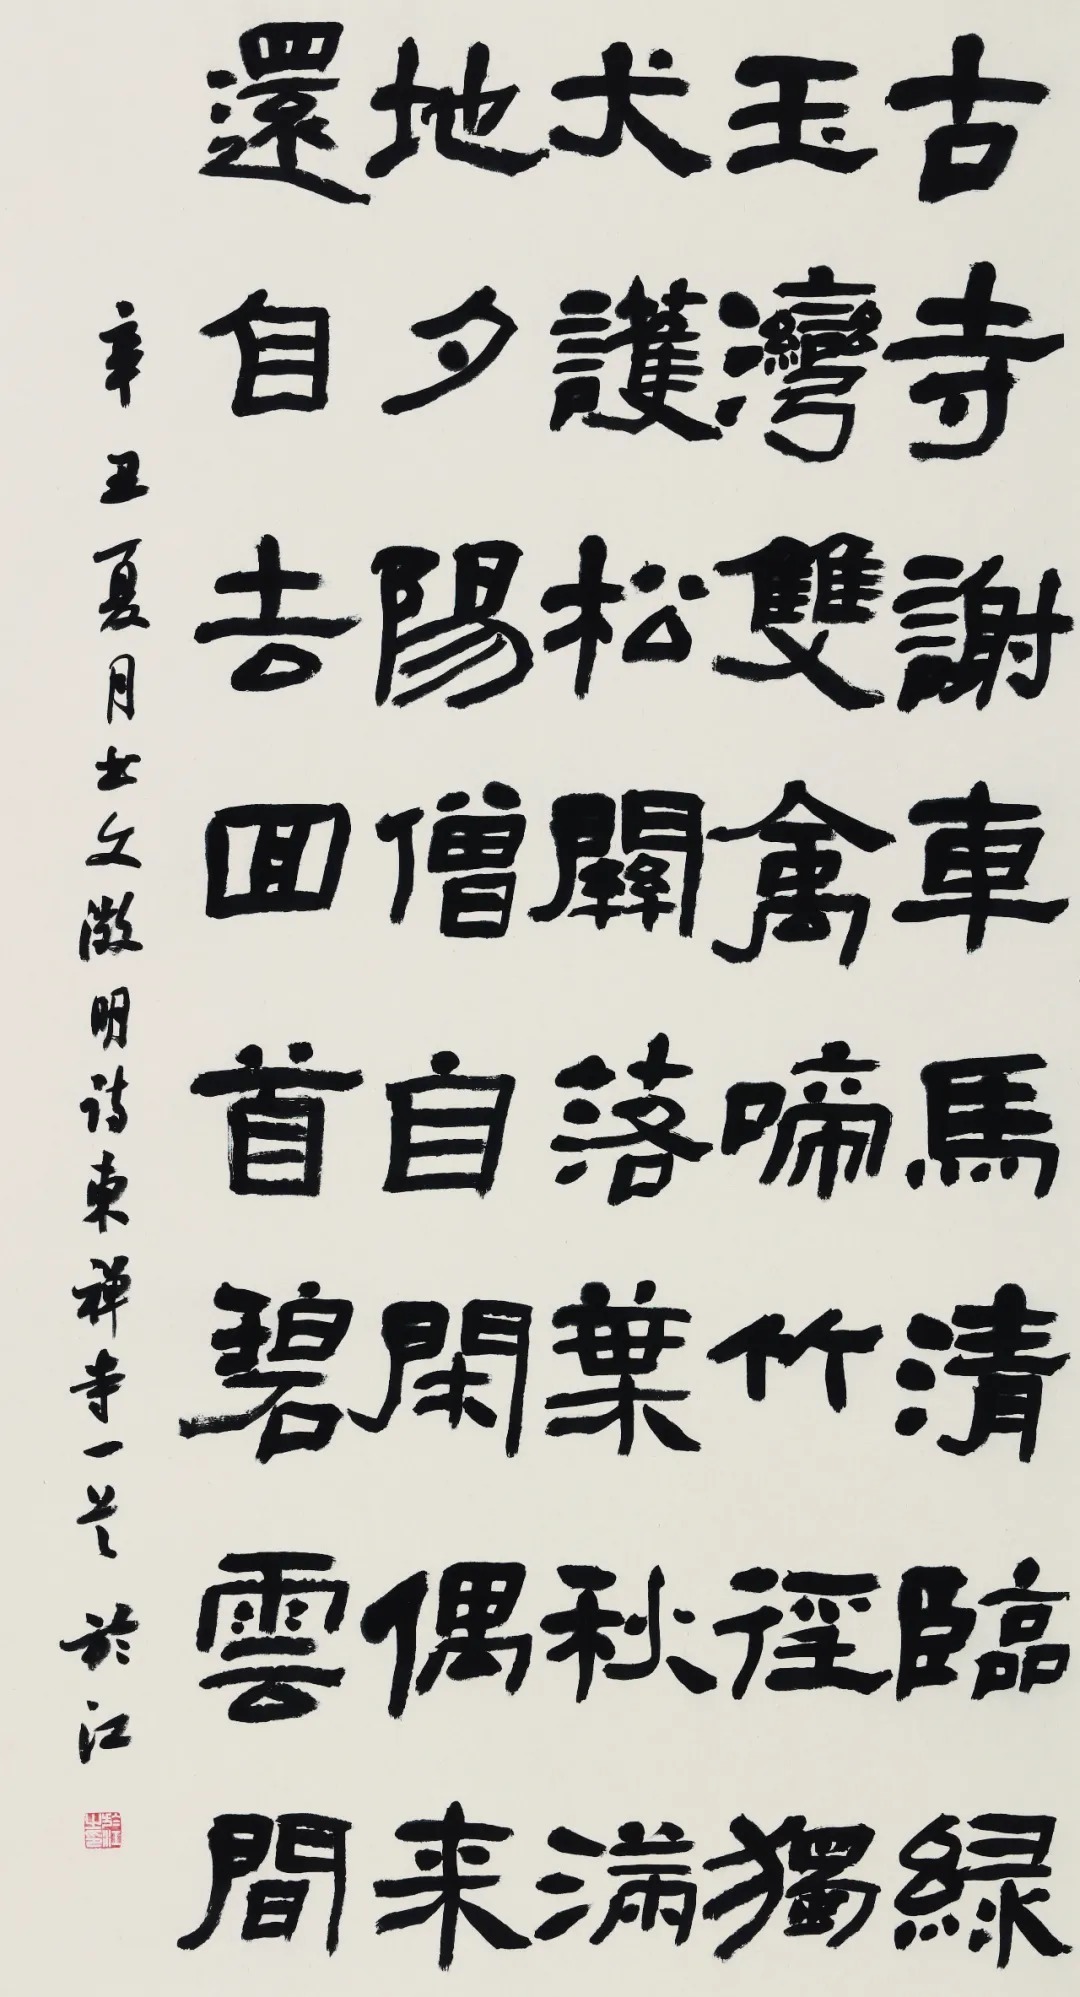 古寺謝車馬清臨綠
玉灣雙禽啼竹徑獨
犬護松關落葉秋滿
地夕陽僧自閑偶来
還自去回首碧雲間
辛丑夏月书文徵明诗東禅寺一首於江